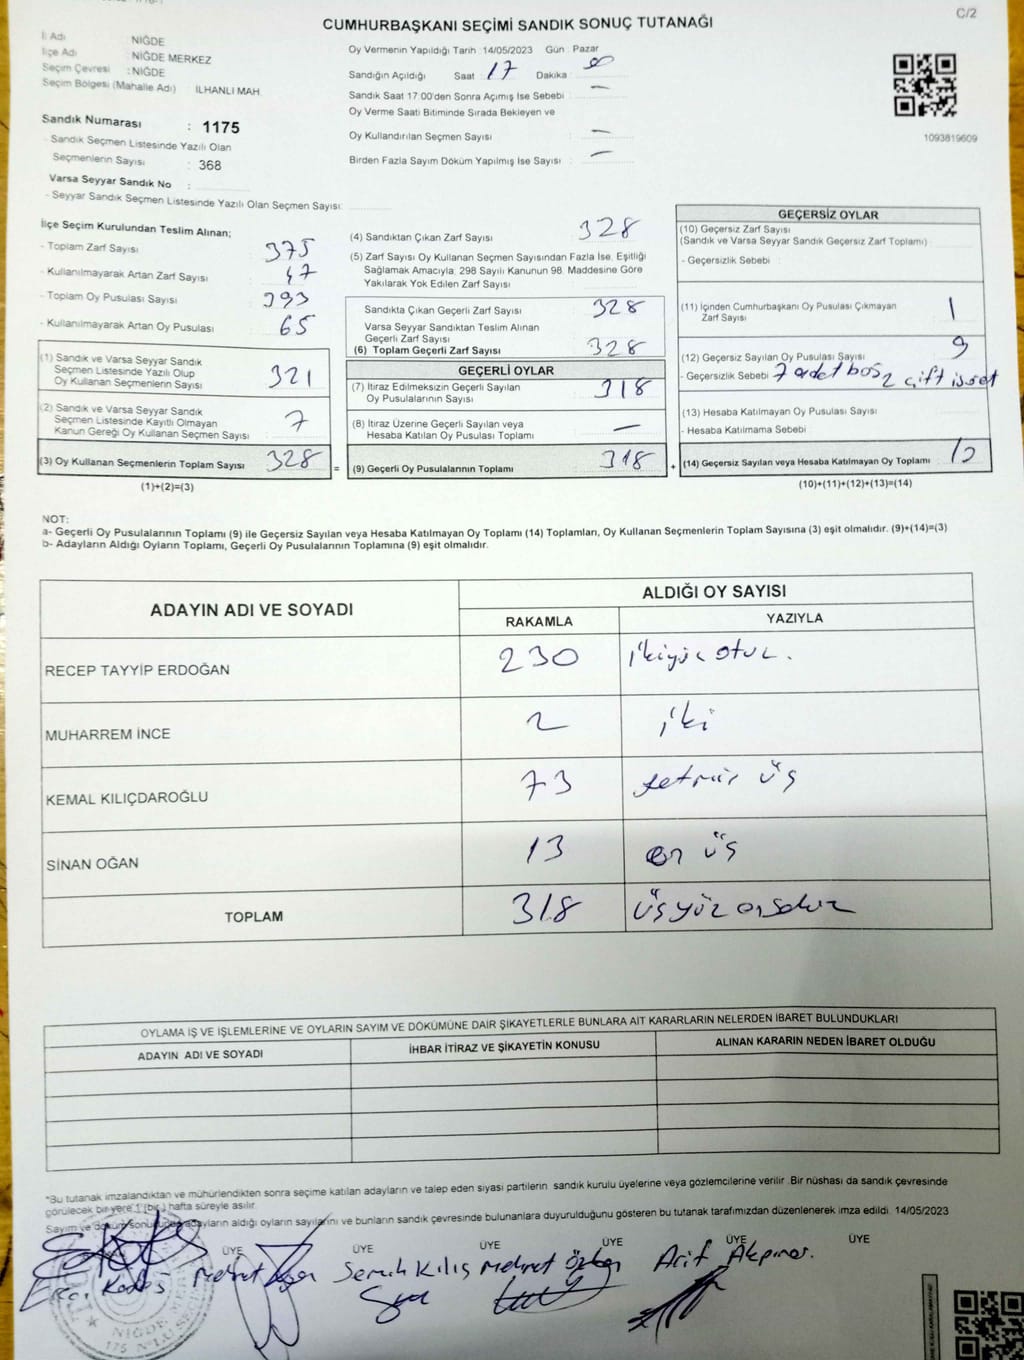 CUMHURBAŞKANI SEÇİMİ SANDIK SONUÇ TUTANAĞI
C/2
İl Adı NİĞDE
İlçe Adı NİĞDE MERKEZ
Seçim Çevresi : NİĞDE
Seçim Bölgesi (Mahalle Adı) İLHANLI MAH.
Sandık Numarası : 1175
- Sandık Seçmen Listesinde Yazılı Olan
Seçmenlerin Sayısı : 368
Varsa Seyyar Sandık No :
- Seyyar Sandık Seçmen Listesinde Yazılı Olan Seçmen Sayısı:
Oy Vermenin Yapıldığı Tarih : 14/05/2023 Gün : Pazar
Sandığın Açıldığı Saat : 17 Dakika :
Sandık Saat 17:00'den Sonra Açımış İse Sebebi : —
Oy Verme Saati Bitiminde Sırada Bekleyen ve
Oy Kullandırılan Seçmen Sayısı : —
Birden Fazla Sayım Döküm Yapılmış İse Sayısı : —
1093819609
İlçe Seçim Kurulundan Teslim Alınan;
- Toplam Zarf Sayısı : 375
- Kullanılmayarak Artan Zarf Sayısı : 47
- Toplam Oy Pusulası Sayısı : 393
- Kullanılmayarak Artan Oy Pusulası : 65
(1) Sandık ve Varsa Seyyar Sandık
Seçmen Listesinde Yazılı Olup
Oy Kullanan Seçmenlerin Sayısı : 321
(2) Sandık ve Varsa Seyyar Sandık
Seçmen Listesinde Kayıtlı Olmayan
Kanun Gereği Oy Kullanan Seçmen Sayısı : 7
(3) Oy Kullanan Seçmenlerin Toplam Sayısı 328
(1)+(2)=(3)
(4) Sandıktan Çıkan Zarf Sayısı : 328
(5) Zarf Sayısı Oy Kullanan Seçmen Sayısından Fazla İse, Eşitliği
Sağlamak Amacıyla; 298 Sayılı Kanunun 98. Maddesine Göre
Yakılarak Yok Edilen Zarf Sayısı :
Sandıkta Çıkan Geçerli Zarf Sayısı : 328
Varsa Seyyar Sandıktan Teslim Alınan
Geçerli Zarf Sayısı :
(6) Toplam Geçerli Zarf Sayısı : 328
GEÇERLİ OYLAR
(7) İtiraz Edilmeksizin Geçerli Sayılan
Oy Pusulalarının Sayısı : 318
(8) İtiraz Üzerine Geçerli Sayılan veya
Hesaba Katılan Oy Pusulası Toplamı : —
= (9) Geçerli Oy Pusulalarının Toplamı : 318
GEÇERSİZ OYLAR
(10) Geçersiz Zarf Sayısı
(Sandık ve Varsa Seyyar Sandık Geçersiz Zarf Toplamı) :
- Geçersizlik Sebebi :
(11) İçinden Cumhurbaşkanı Oy Pusulası Çıkmayan
Zarf Sayısı : 1
(12) Geçersiz Sayılan Oy Pusulası Sayısı : 9
- Geçersizlik Sebebi : 7 adet boş 2 çift isset
(13) Hesaba Katılmayan Oy Pusulası Sayısı :
- Hesaba Katılmama Sebebi :
+ (14) Geçersiz Sayılan veya Hesaba Katılmayan Oy Toplamı : 10
(10)+(11)+(12)+(13)=(14)
NOT:
a- Geçerli Oy Pusulalarının Toplamı (9) ile Geçersiz Sayılan veya Hesaba Katılmayan Oy Toplamı (14) Toplamları, Oy Kullanan Seçmenlerin Toplam Sayısına (3) eşit olmalıdır. (9)+(14)=(3)
b- Adayların Aldığı Oyların Toplamı, Geçerli Oy Pusulalarının Toplamına (9) eşit olmalıdır.
ADAYIN ADI VE SOYADI ALDIĞI OY SAYISI
RAKAMLA YAZIYLA
RECEP TAYYİP ERDOĞAN 230 ikiyüz otuz.
MUHARREM İNCE 2 iki
KEMAL KILIÇDAROĞLU 73 yetmiş üş
SİNAN OĞAN 13 on üş
TOPLAM 318 üşyüz onsekiz
OYLAMA İŞ VE İŞLEMLERİNE VE OYLARIN SAYIM VE DÖKÜMÜNE DAİR ŞİKAYETLERLE BUNLARA AİT KARARLARIN NELERDEN İBARET BULUNDUKLARI
ADAYIN ADI VE SOYADI İHBAR İTİRAZ VE ŞİKAYETİN KONUSU ALINAN KARARIN NEDEN İBARET OLDUĞU
*Bu tutanak imzalandıktan ve mühürlendikten sonra seçime katılan adayların ve talep eden siyasi partilerin sandık kurulu üyelerine veya gözlemcilerine verilir. Bir nüshası da sandık çevresinde
görülecek bir yere 1 (bir) hafta süreyle asılır.
Sayım ve döküm sonucunda adayların aldığı oyların sayılarını ve bunların sandık çevresinde bulunanlara duyurulduğunu gösteren bu tutanak tarafımızdan düzenlenerek imza edildi. 14/05/2023
ÜYE ÜYE ÜYE ÜYE ÜYE ÜYE
Mehmet Semih Kılış Mehmet Özkan Arif Akpınar.
NİĞDE